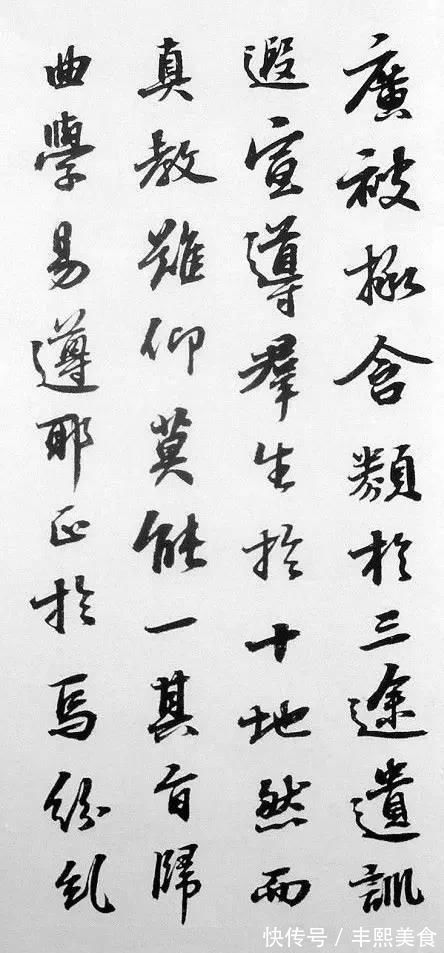 廣被拯含類於三途遺訓
遐宣導羣生於十地然而
真教難仰莫能一其旨歸
曲學易遵耶正於焉紛糺
快传号 / 丰熙美食